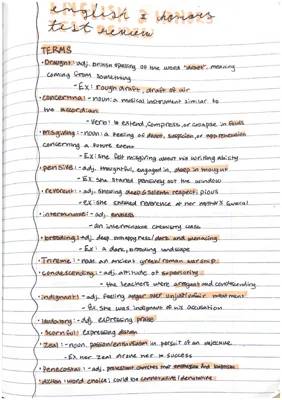 english 2 honors
test review
TERMS
• Draught: adj. british spelling of the word "draft", meaning
coming from something
- Ex: rough draft, draft of air
• concertina: - noun: a musical instrument similar to
the accordian
- Verb: to extend, compress, or collapse in folds
• misgiving: - noun: a feeling of doubt, suspicion, or apprehension
concerning a future event
- Ex: she felt misgiving about his writing ability
• pensive: - adj. thoughtful, engaged in, deep in thought
- Ex: she stared pensively out the window
• reverent: - adj. showing deep & solemn respect; pious
- ex: she showed reverence at her mother's funeral
• interminable: - adj. endless
- an interminable chemistry class
• brooding: - adj. deep unhappyness / dark and menacing
- Ex: a dark, brooding landscape
• Trireme: - noun. an ancient greek/roman warship
• Condescending: - adj. attitude of superiority
- the teachers were arrogant and condescending
• indignant: - adj. feeling anger over unjust/unfair treatment
- Ex. she was indignant of his accusation
• laudatory: - adj. expressing praise
• Scornful: expressing disdain
• Zeal: - noun. passion/enthusiasm in pursuit of an objective
- Ex: her zeal drove her to success
• Penecostal: - adj. protestant churches that emphasize and
• diction: word choice; could be connotative/denotative